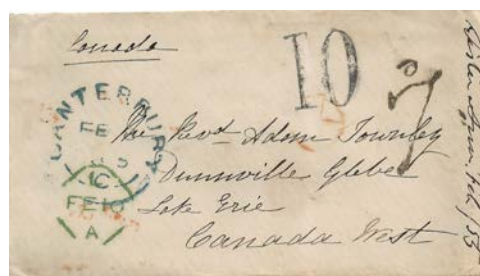 Canada
10
CANTERBURY
FE
The Revd Adam Townley
Dunnville Glebe
Lake Erie
Canada West
FE 10
A